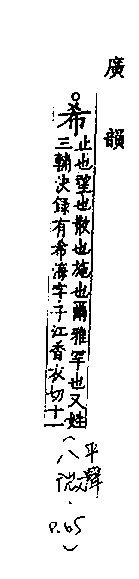 廣韻
希止也望也散也施也爾雅罕也又姓
三輔決録有希海字子江香衣切十一
（平聲
八微
p.65）